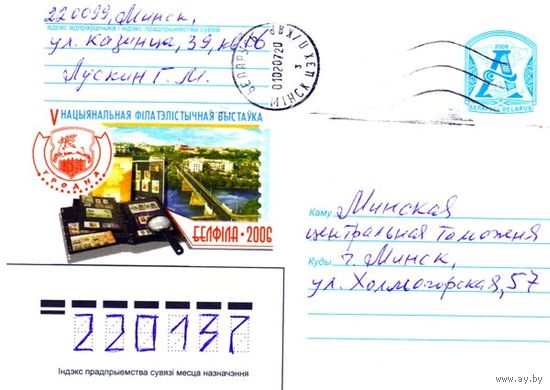 220099, Минск,
адрас адпраўшчыка і індэкс прадпрыемства сувязі
ул. Казинца, 39, кв. 66
Лускин Г. М.
V НАЦЫЯНАЛЬНАЯ ФІЛАТЭЛІСТЫЧНАЯ ВЫСТАЎКА
ГРОДНА
БЕЛФІЛА • 2006
БЕЛАРУСЬ
01020720
МІНСК
2006
А
БЕЛАРУСЬ BELARUS
Каму Минская
центральная таможня
Куды г. Минск,
ул. Холмогорская, 57
220137
Індэкс прадпрыемства сувязі месца назначэння
www.ay.by